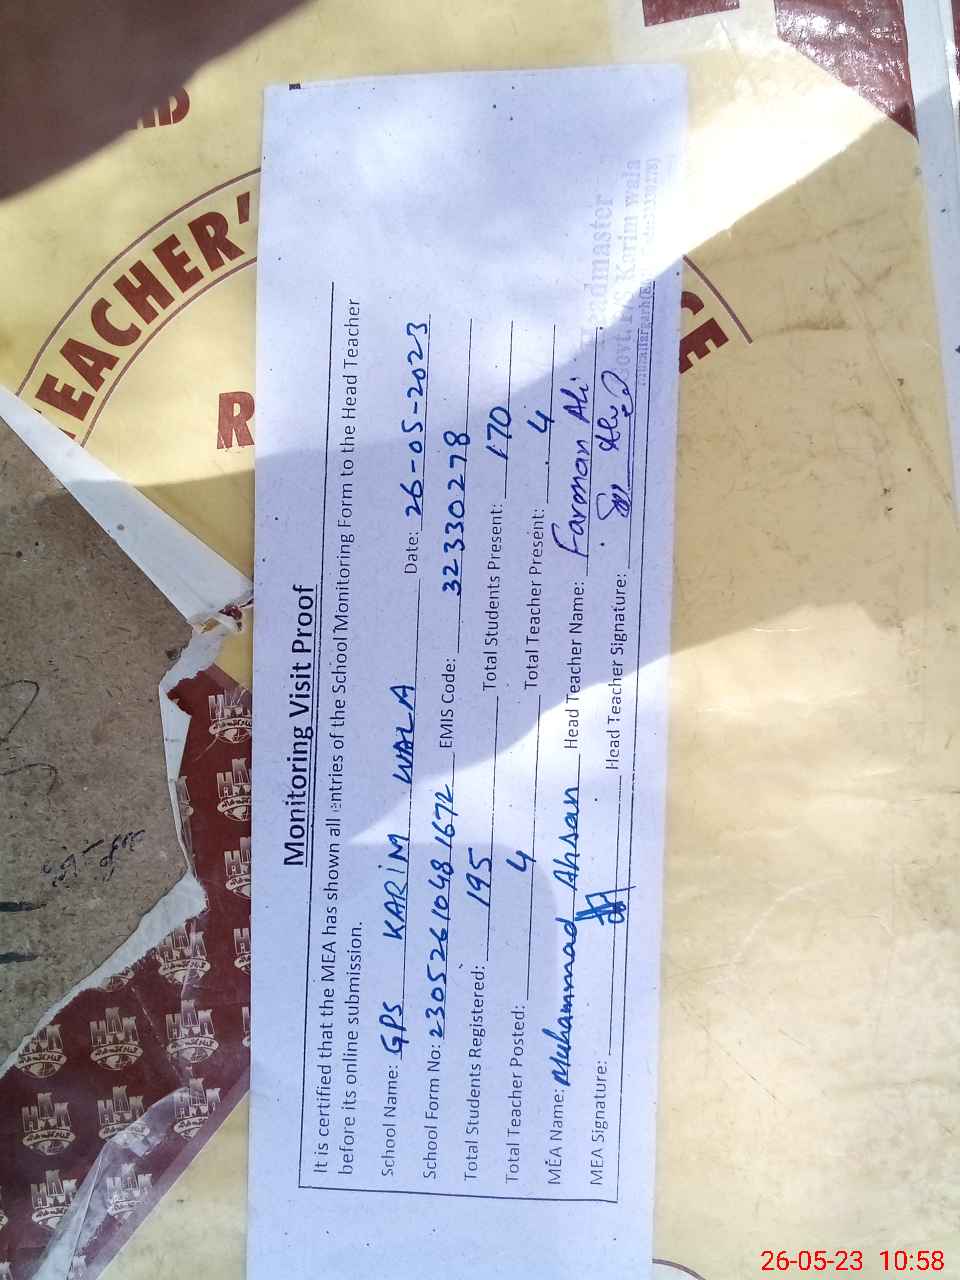 Monitoring Visit Proof
It is certified that the MEA has shown all entries of the School Monitoring Form to the Head Teacher
before its online submission.
School Name: GPS KARIM WALA Date: 26-05-2023
School Form No: 2305261048 1672 EMIS Code: 32330278
Total Students Registered: 195 Total Students Present: 170
Total Teacher Posted: 4 Total Teacher Present: 4
MEA Name: Muhammad Ahsan Head Teacher Name: Farman Ali
MEA Signature: Head Teacher Signature:
Headmaster
Govt. P/S Karim wala
TEACHER'
R
CE
HKK
26-05-23 10:58